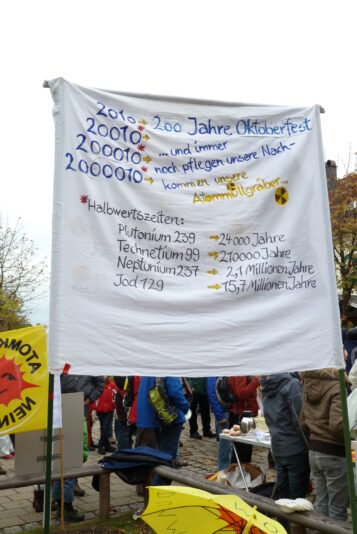 2010 → 200 Jahre Oktoberfest
20010 → ... und immer
200010 → noch pflegen unsere Nach-
2000010 → kommen unsere
Atommüllgräber...
*Halbwertszeiten:
Plutonium 239 → 24000 Jahre
Technetium 99 → 210000 Jahre
Neptunium 237 → 2,1 Millionen Jahre
Jod 129 → 15,7 Millionen Jahre
ATOMK
NEIN